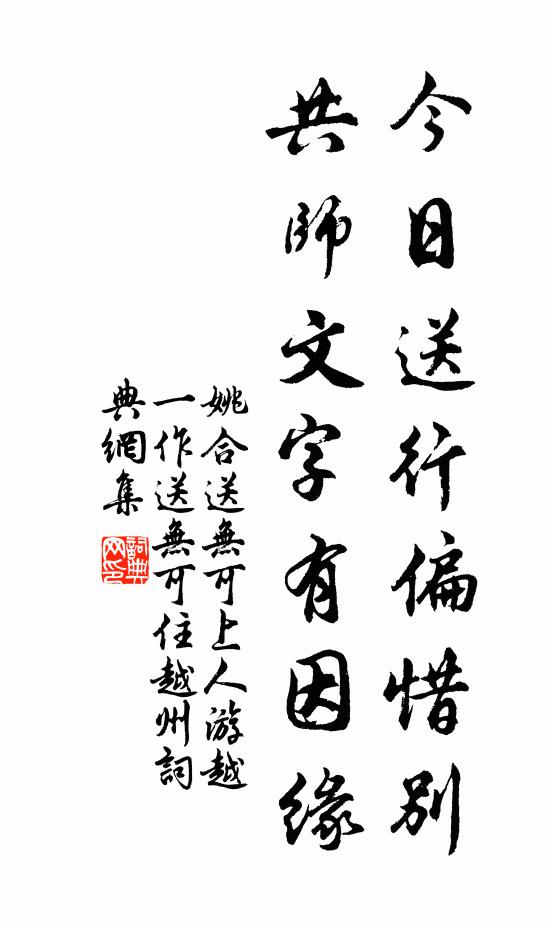 今日送行偏惜別
共師文字有因緣
姚合送無可上人游越
一作送無可住越州詞
典網集
詞典
网印